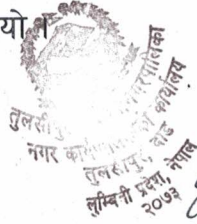 यो ।
तुलसीपु
नगरपालिका
नगर कार्यपालिकाको कार्यालय
तुलसीपुर, दाङ
लुम्बिनी प्रदेश, नेपाल
२०७३